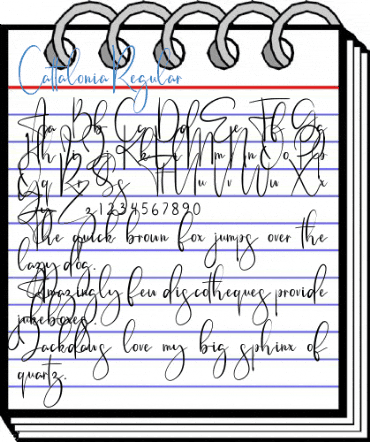 Cattalonia Regular
Aa Bb Cc Dd Ee Ff Gg
Hh Ii Jj Kk Ll Mm Nn Oo Pp
Qq Rr Ss Tt Uu Vv Ww Xx
Yy Zz 1234567890
The quick brown fox jumps over the
lazy dog.
Amazingly few discotheques provide
jukeboxes.
Jackdaws love my big sphinx of
quartz.